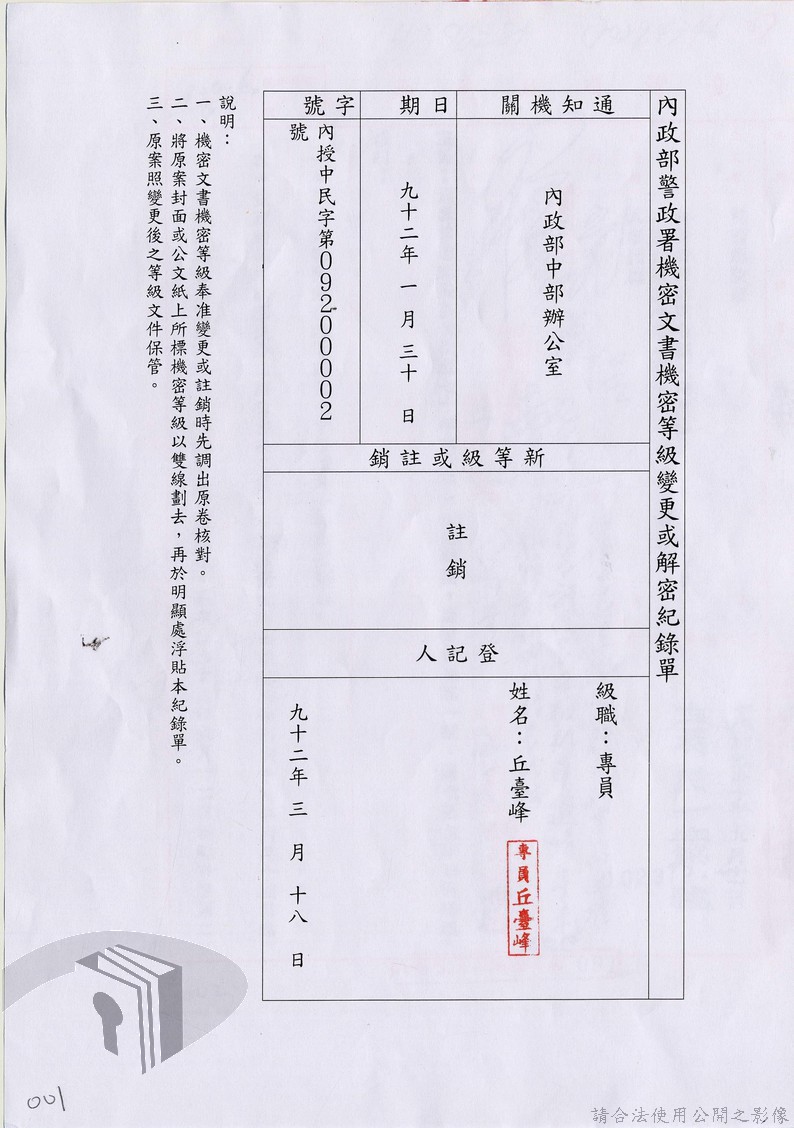 內政部警政署機密文書機密等級變更或解密紀錄單
通知機關
內政部中部辦公室
日期
九十二年一月三十日
字號
內授中民字第0920000​2
號
新等級或註銷
註銷
登記人
級職：專員
姓名：丘臺峰
專員丘臺峰
九十二年三月十八日
說明：
一、機密文書機密等級奉准變更或註銷時先調出原卷核對。
二、將原案封面或公文紙上所標機密等級以雙線劃去，再於明顯處浮貼本紀錄單。
三、原案照變更後之等級文件保管。
001
請合法使用公開之影像